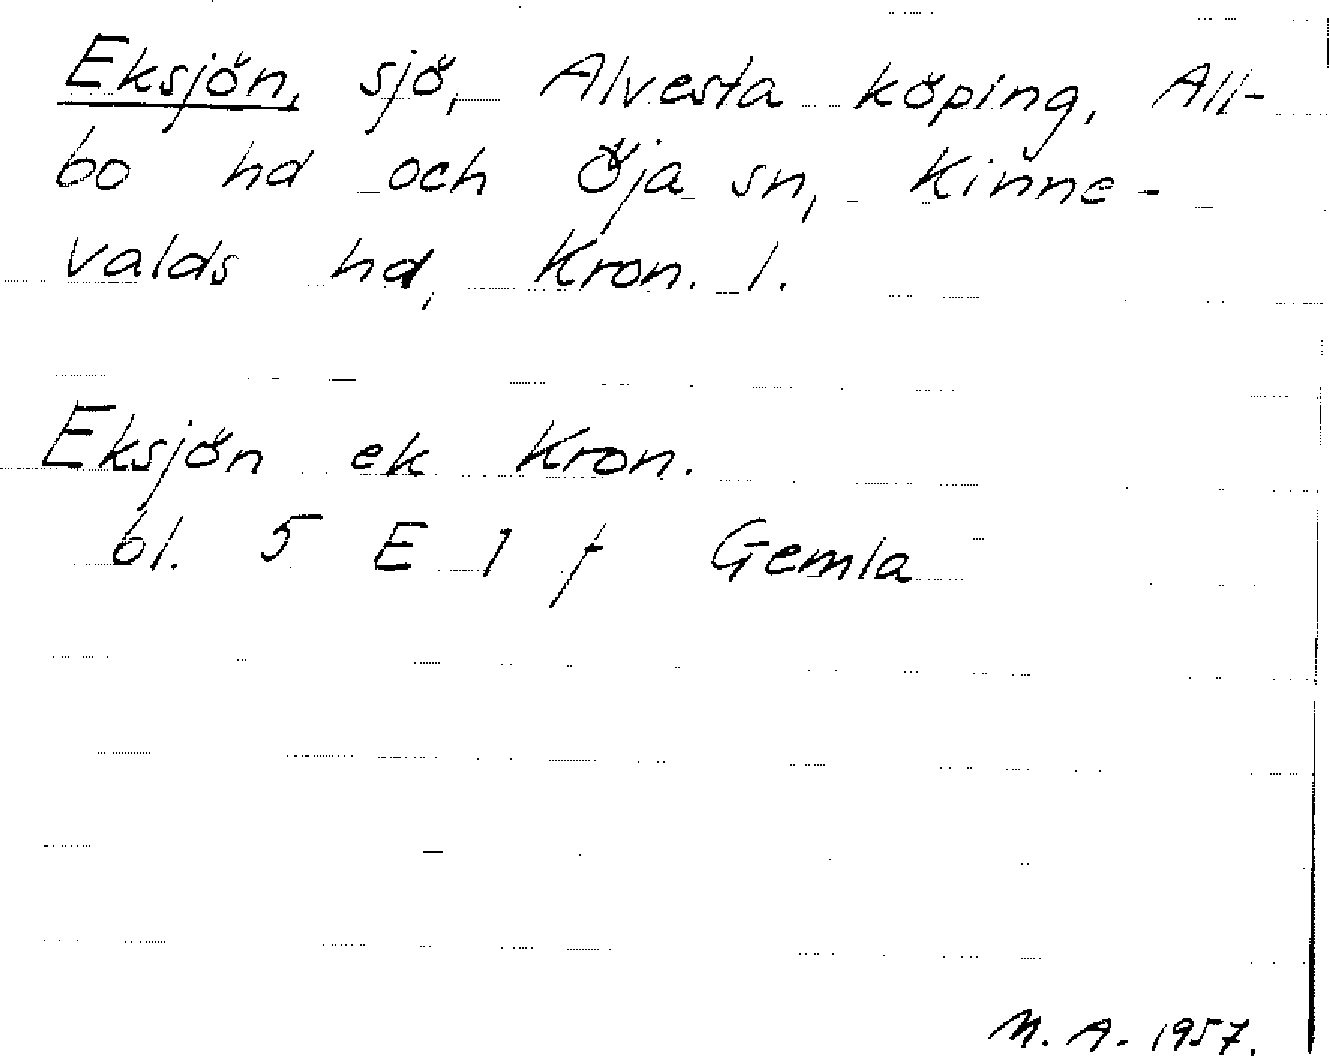 Eksjön, sjö, Alvesta köping, All-
bo hd och Öja sn, Kinne-
valds hd, Kron. l.
Eksjön ek Kron.
bl. 5 E 1 f Gemla
M. A. 1957.